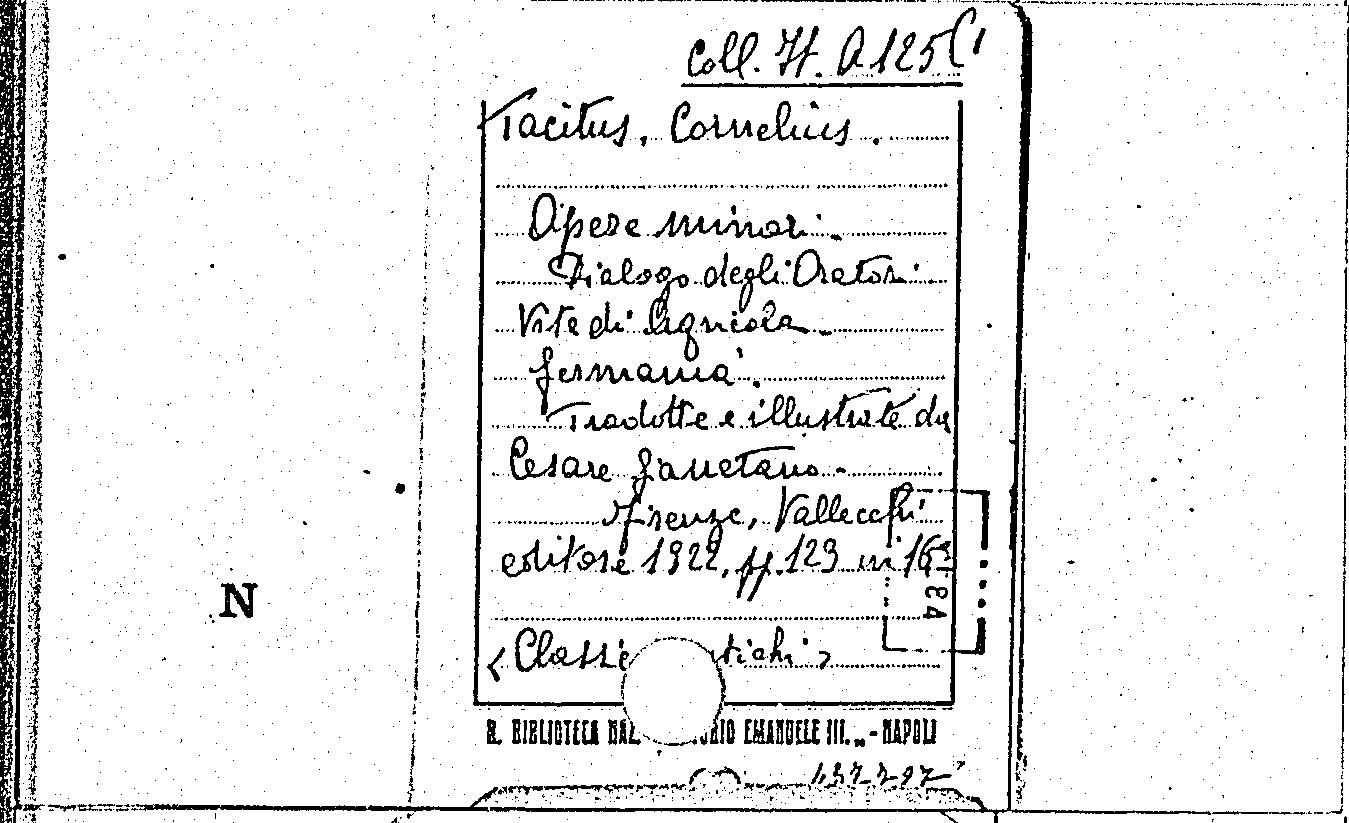 Coll. It. A 125 (1
Tacitus, Cornelius.
Opere minori.
Dialogo degli Oratori
Vita di Agricola.
Germania.
Tradotte e illustrate da
Cesare Giarratano.
Firenze, Vallecchi
editore 1922, pp. 123 in 16º
84
N
< Classi tichi >
R. BIBLIOTECA NAZ ORIO EMANUELE III. „ - NAPOLI